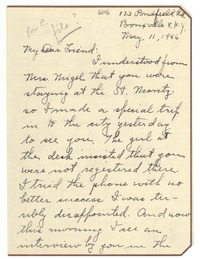 133 Pondfield Rd.
Bronxville N.Y.
May 11, 1936
My Dear Friend:
I understood from
Mrs. Nigel that you were
staying at the St. Moritz
so I made a special trip
in to the city yesterday
to see you. The girl at
the desk insisted that you
were not registered there.
I tried the phone with no
better success I was ter-
ribly disappointed. And now
this morning I see an
interview by you in the